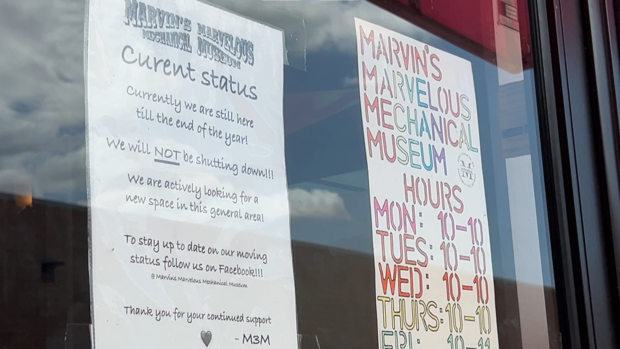 MARVIN'S MARVELOUS
MECHANICAL MUSEUM
Curent status
Currently we are still here
till the end of the year!
We will NOT be shutting down!!!
We are actively looking for a
new space in this general area!
To stay up to date on our moving
status follow us on Facebook!!!
@Marvins Marvelous Mechanical Museum
Thank you for your continued support
♥ - M3M
MARVIN'S
MARVELOUS
MECHANICAL
MUSEUM
HOURS
MON: 10-10
TUES: 10-10
WED: 10-10
THURS: 10-10
FRI: 10-11